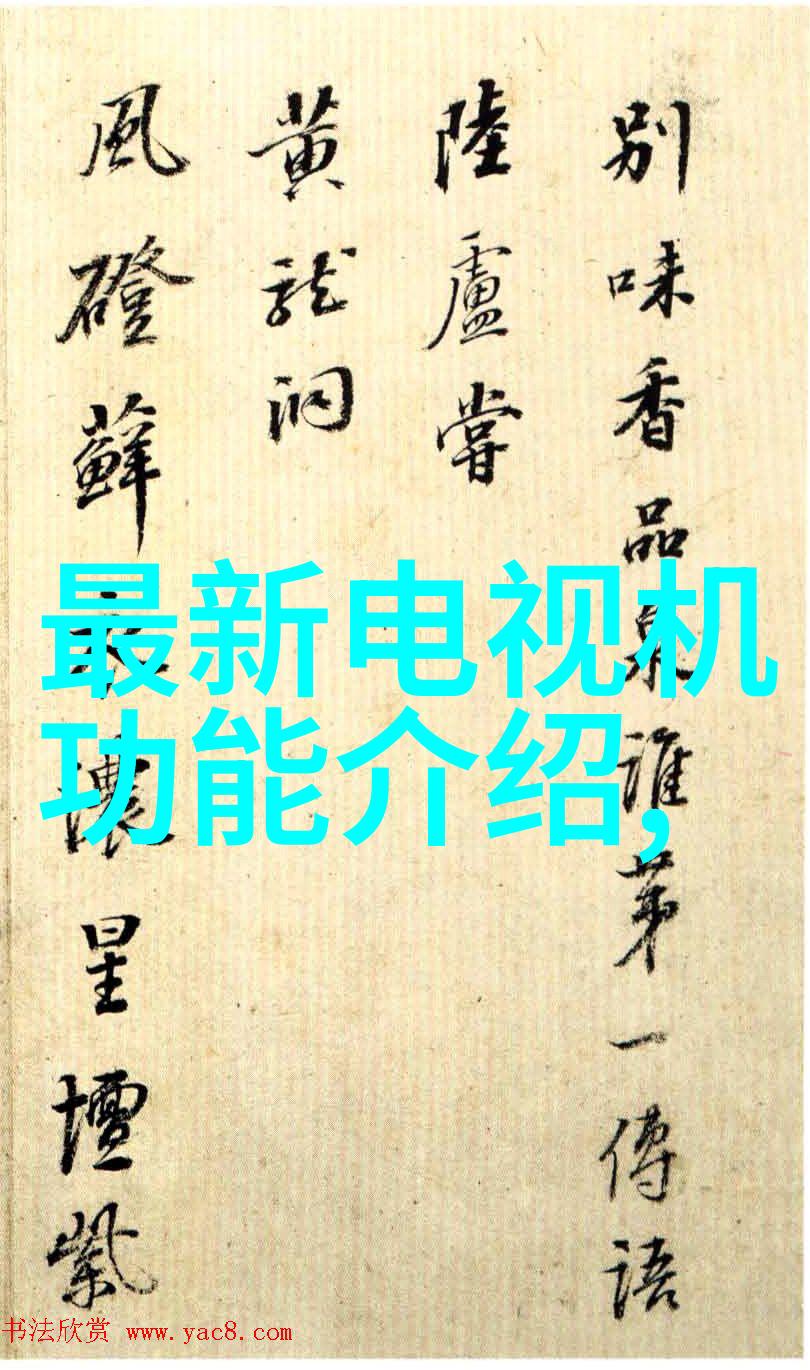 別味香品泉誰第一傳語
陸盧嘗
黃龍洞
風磴蘚濃星壇紫
最新电视机
功能介绍,
书法欣赏 www.yac8.com